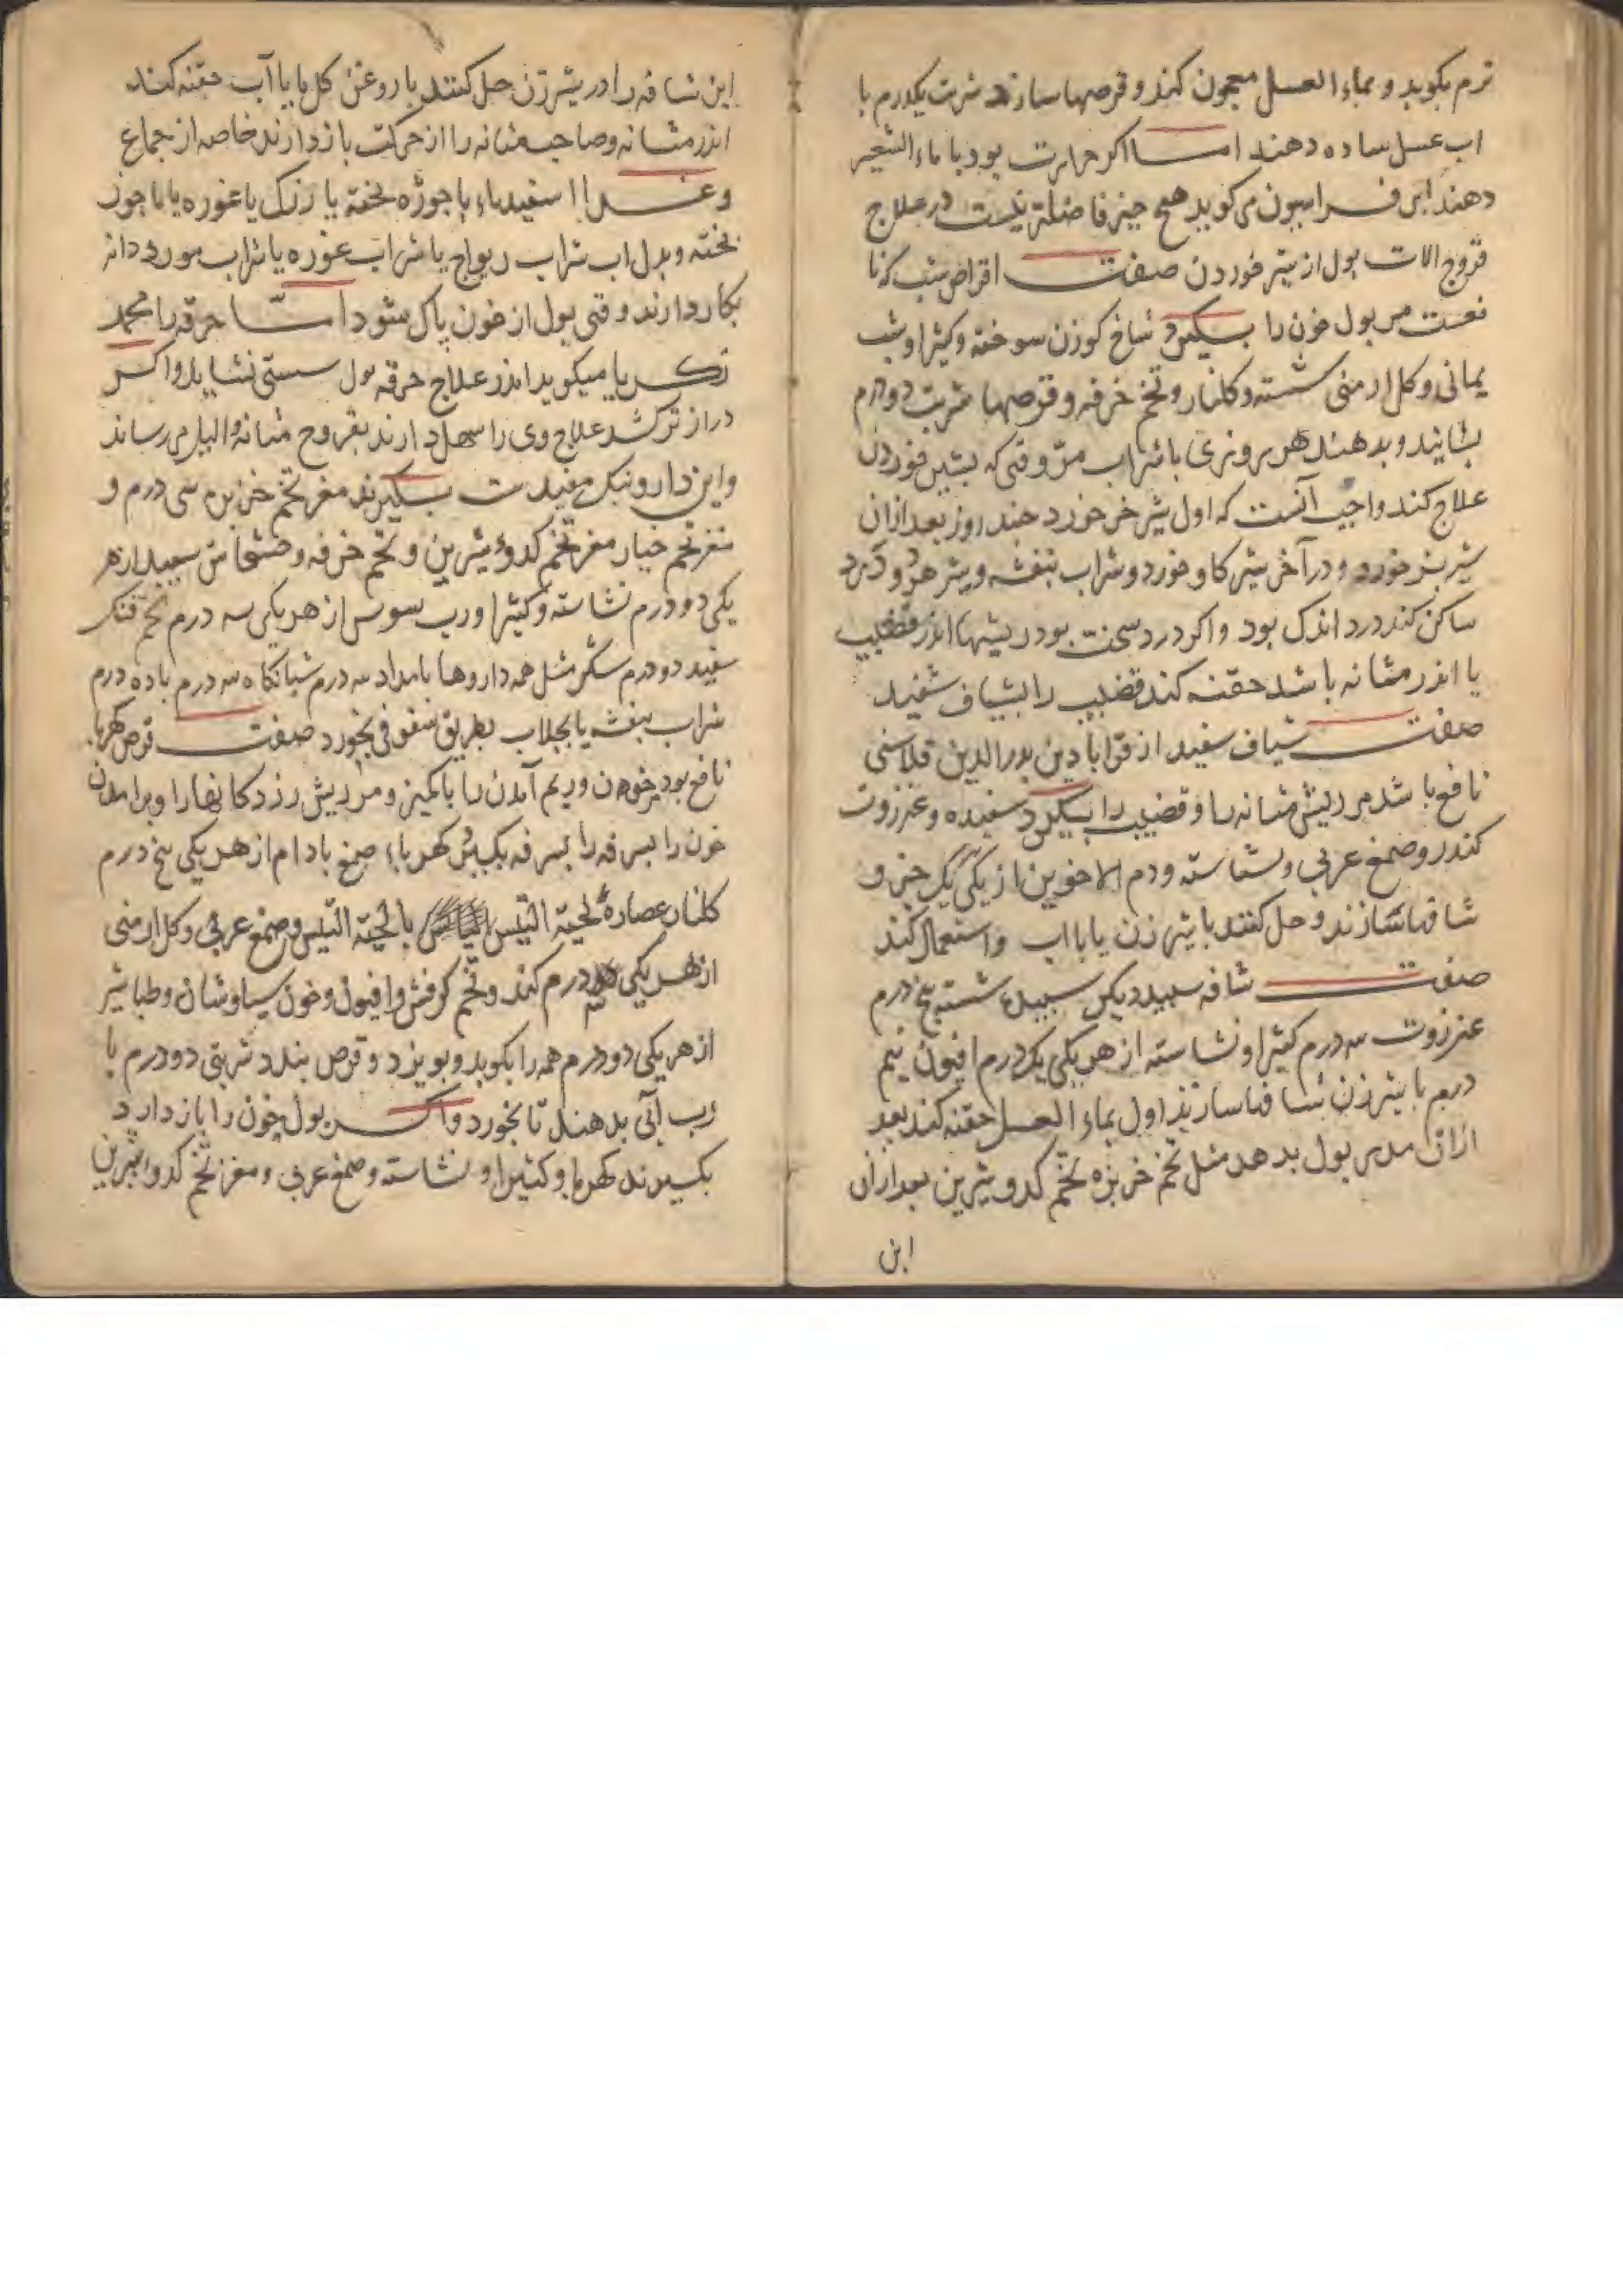 نرم بکوبد و بماء العسل معجون کند و قرصها سازند شربت یکدرم با
اب عسل ساده دهند اما اکر حرارت بود با ماء الشعیر
دهند ابن فراسیون می کوید هیچ چیز فاضلتر نیست در علاج
قروح الات بول از شیر خوردن صفت اقراص شب که نا
فعست مر بول خون را بسکیرد شاخ کوزن سوخته و کثیرا و شب
یمانی و کل ارمنی شسته و کلنار و تخم خرفه و قرصها شربت دودرم
بشایند و بدهند هر بروزی با شراب مرّ وقتی که بشیر خوردن
علاج کند واجب آنست که اول شیر خر خورد چند روز بعد ازان
شیر بز خورد و در آخر شیر کاو خورد و شراب بنفشه و شیر هر دو درد
ساکن کند درد اندک بود و اکر درد سخت بود ریشها اندر قضیب
یا اندر مثانه باشد حقنه کند قضیب را بشیاف سفید
صفت شیاف سفید از قرابادین بدر الدین قلانسی
نافع باشد مر ریش مثانه را و قضیب را بسکیرد سفیده و عنزروت
کندر و صمغ عربی و نشاسته و دم الاخوین از یکی یک جزو
شافها سازند و حل کنند با شیر زن یا با اب و استعمال کند
صفت شافه سپید دیکر سپیده شسته پنج درم
عنزروت سه درم کثیرا و نشاسته از هر یکی یکدرم افیون نیم
درم با شیر زن شافها سازند اول بماء العسل حقنه کند بعد
ازان مدر بول بدهد مثل تخم خربزه تخم کدو شیرین بعد ازان
این
این شافه را در شیر زن حل کنند با روغن کل یا با آب حقنه کند
اندر مثانه و صاحب مثانه را از حرکت باز دارند خاصه از جماع
و غذا اسفیدباء با جوژه پخته یا زرک یا غوره یا با جوز
پخته و بدل اب شراب ریواج یا شراب غوره یا شراب مورد دانه
بکار دارند وقتی بول از خون پاک شود اما حرقه را محمد
زکریا میکوید اندر علاج حرقه بول سستی نشاید و اکر
دراز تر کشد علاج وی را سهل دارند بقروح مثانه و
و این دارو نیک مفیدست بسکیرند مغز تخم خربزه سی درم و
مغز تخم خیار مغز تخم کدوء شیرین و تخم خرفه و خشخاش سپید از هر
یکی دو درم نشاسته و کثیرا و رب سوس از هر یکی سه درم تخم
سفید دو درم سکر مثل همه داروها بامداد سه درم شبانکاه سه درم با ده درم
شراب بنفشه یا بجلاب بطریق سفوفی بخورد صفت قرص کهربا
نافع بود خون و ریم آمدن را با کمیز و مر ریش رذد کانها را و بر امدن
خون را بسرفه بکیرد کهربا صمغ بادام از هر یکی پنج درم
کلنار عصارهٔ لحیة التیس با لحیة التیس و صمغ عربی و کل ارمنی
از هر یکی درم کند و تخم کرفش و افیون و خون سیاوشان و طباشیر
از هر یکی دو درم همه را بکوبد و بویزد و قرص بندد شربتی دو درم با
رب آبی بدهند تا بخورد و اکر بول خون را باز دارد
بکیرند کهربا و کثیرا و نشاسته و صمغ عربی و مغز تخم کدو شیرین